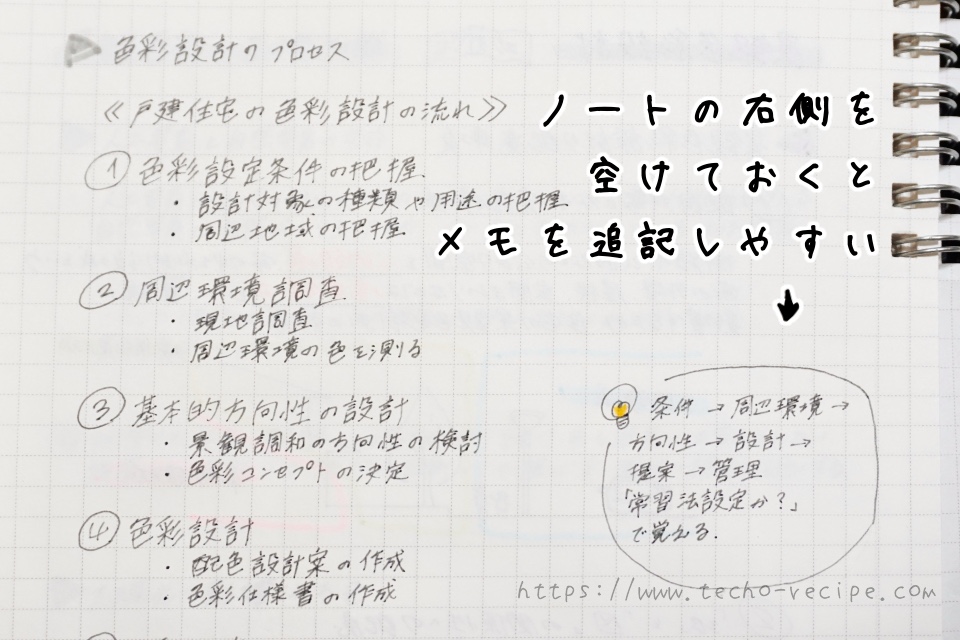 ▷ 色彩設計のプロセス
≪戸建住宅の色彩設計の流れ≫
① 色彩設定条件の把握
・設計対象の種類や用途の把握
・周辺地域の把握
② 周辺環境調査
・現地調査
・周辺環境の色を測る
③ 基本的方向性の設計
・景観調和の方向性の検討
・色彩コンセプトの決定
④ 色彩設計
・配色設計案の作成
・色彩仕様書の作成
ノートの右側を
空けておくと
メモを追記しやすい
↓
条件→周辺環境→
方向性→設計→
提案→管理
「学習法設定か?」
で覚える.
https://www.techo-recipe.com